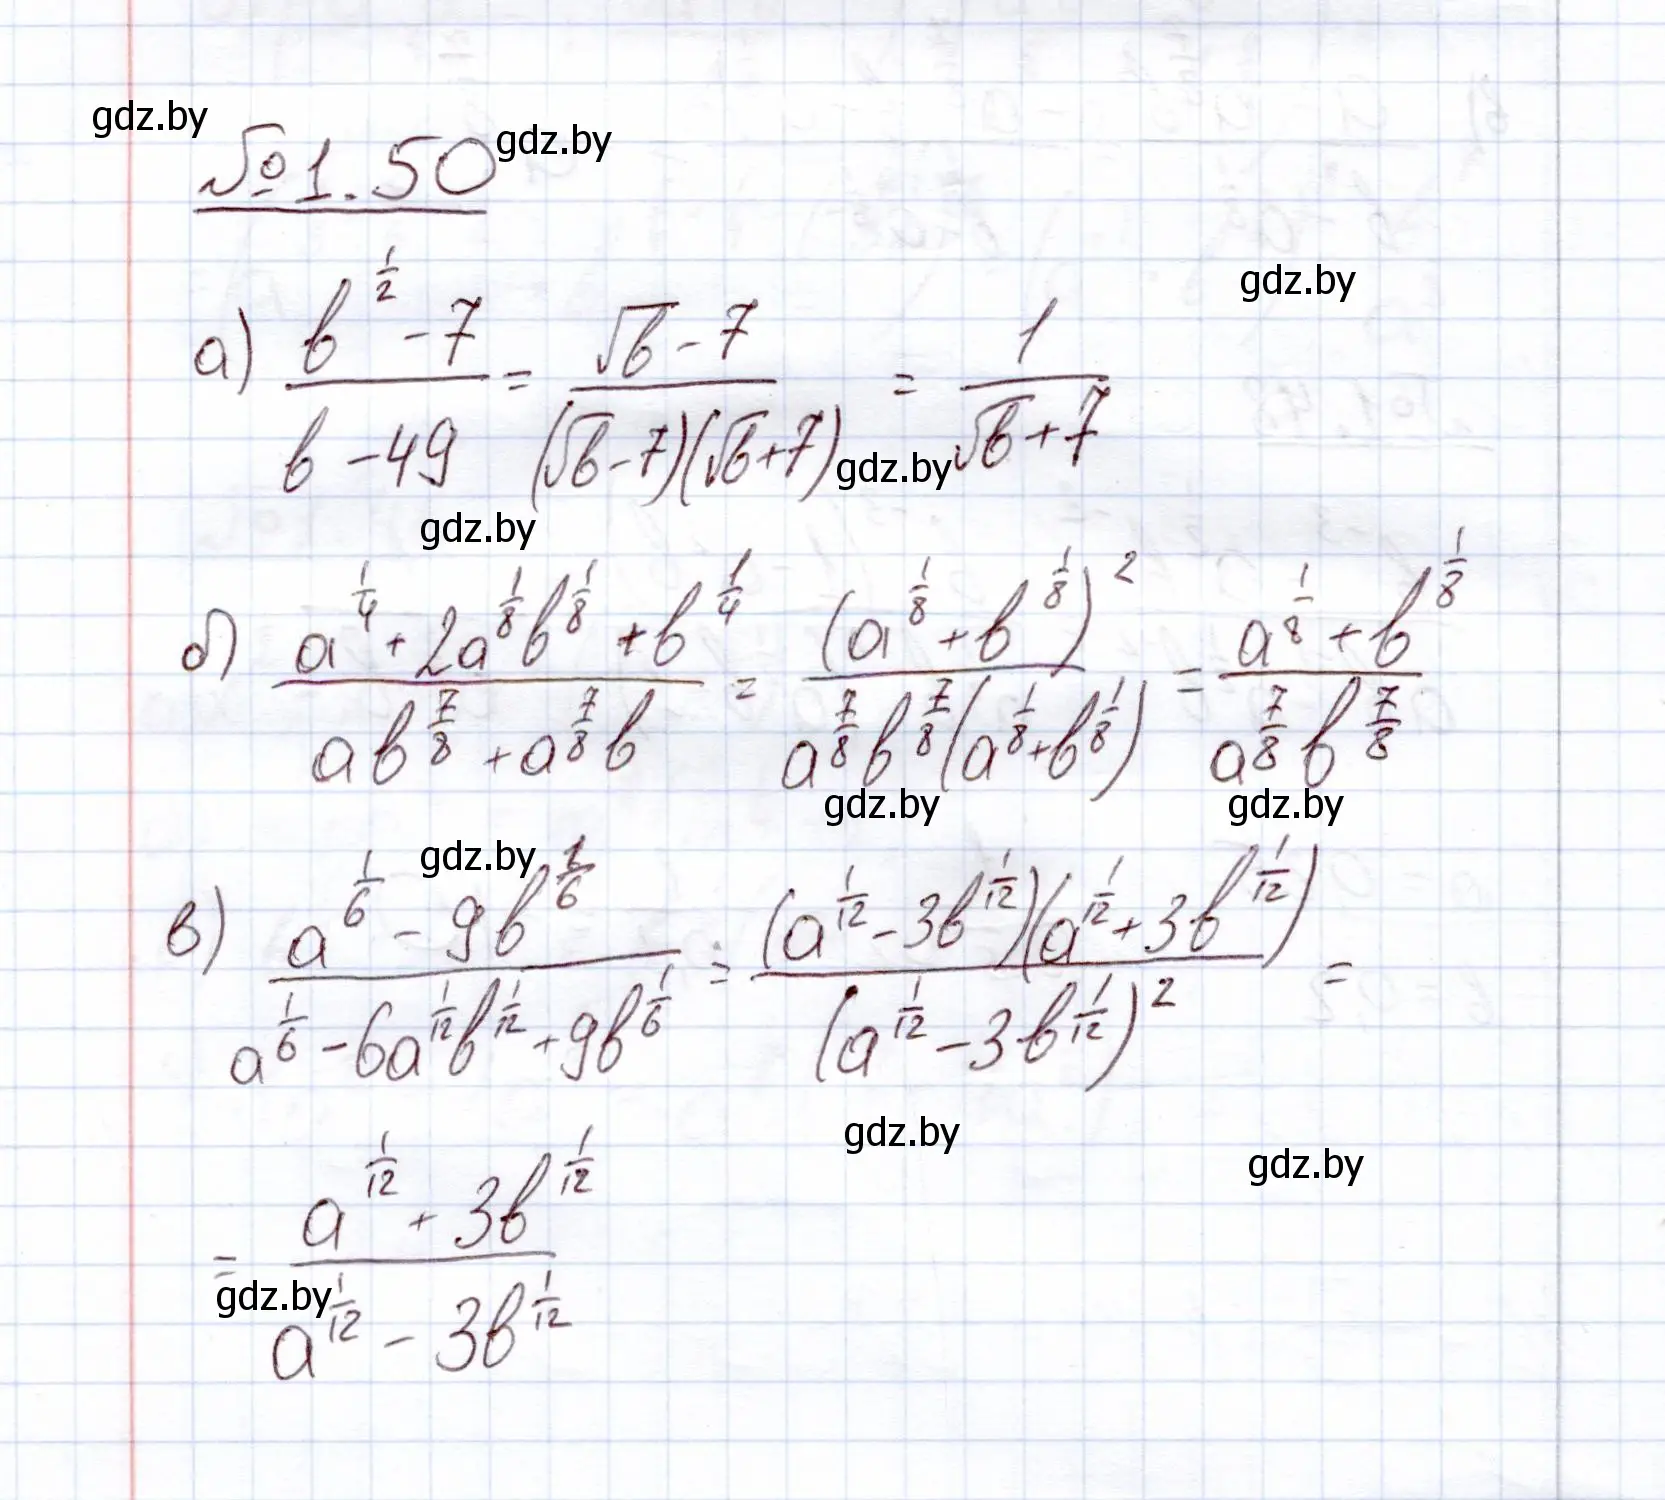 gdz.by
№1.50 gdz.by
gdz.by
а) (b^(1/2) - 7)/(b - 49) = (√b - 7)/((√b - 7)(√b + 7)) = 1/(√b + 7)
gdz.by
gdz.by
б) (a^(1/4) + 2a^(1/8)b^(1/8) + b^(1/4))/(ab^(7/8) + a^(7/8)b) = (a^(1/8) + b^(1/8))^2/(a^(7/8)b^(7/8)(a^(1/8) + b^(1/8))) = (a^(1/8) + b^(1/8))/(a^(7/8)b^(7/8))
gdz.by gdz.by
gdz.by
в) (a^(1/6) - 9b^(1/6))/(a^(1/6) - 6a^(1/12)b^(1/12) + 9b^(1/6)) = ((a^(1/12) - 3b^(1/12))(a^(1/12) + 3b^(1/12)))/(a^(1/12) - 3b^(1/12))^2 =
gdz.by
gdz.by
= (a^(1/12) + 3b^(1/12))/(a^(1/12) - 3b^(1/12))
gdz.by